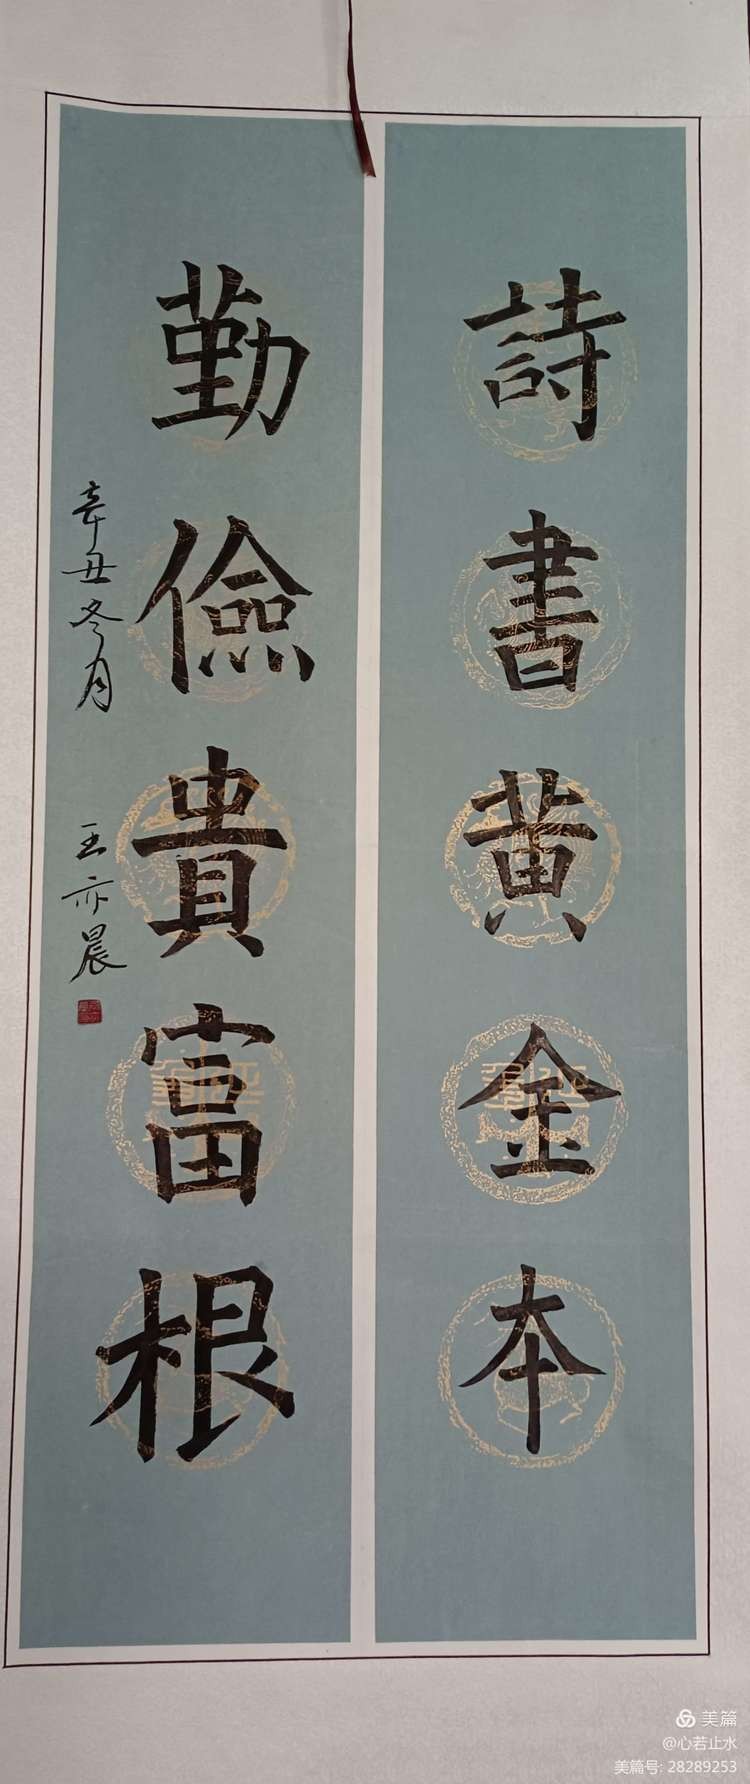 詩書黄金本
勤儉貴富根
辛丑冬月 王亦晨
美篇
@心若止水
美篇号: 28289253